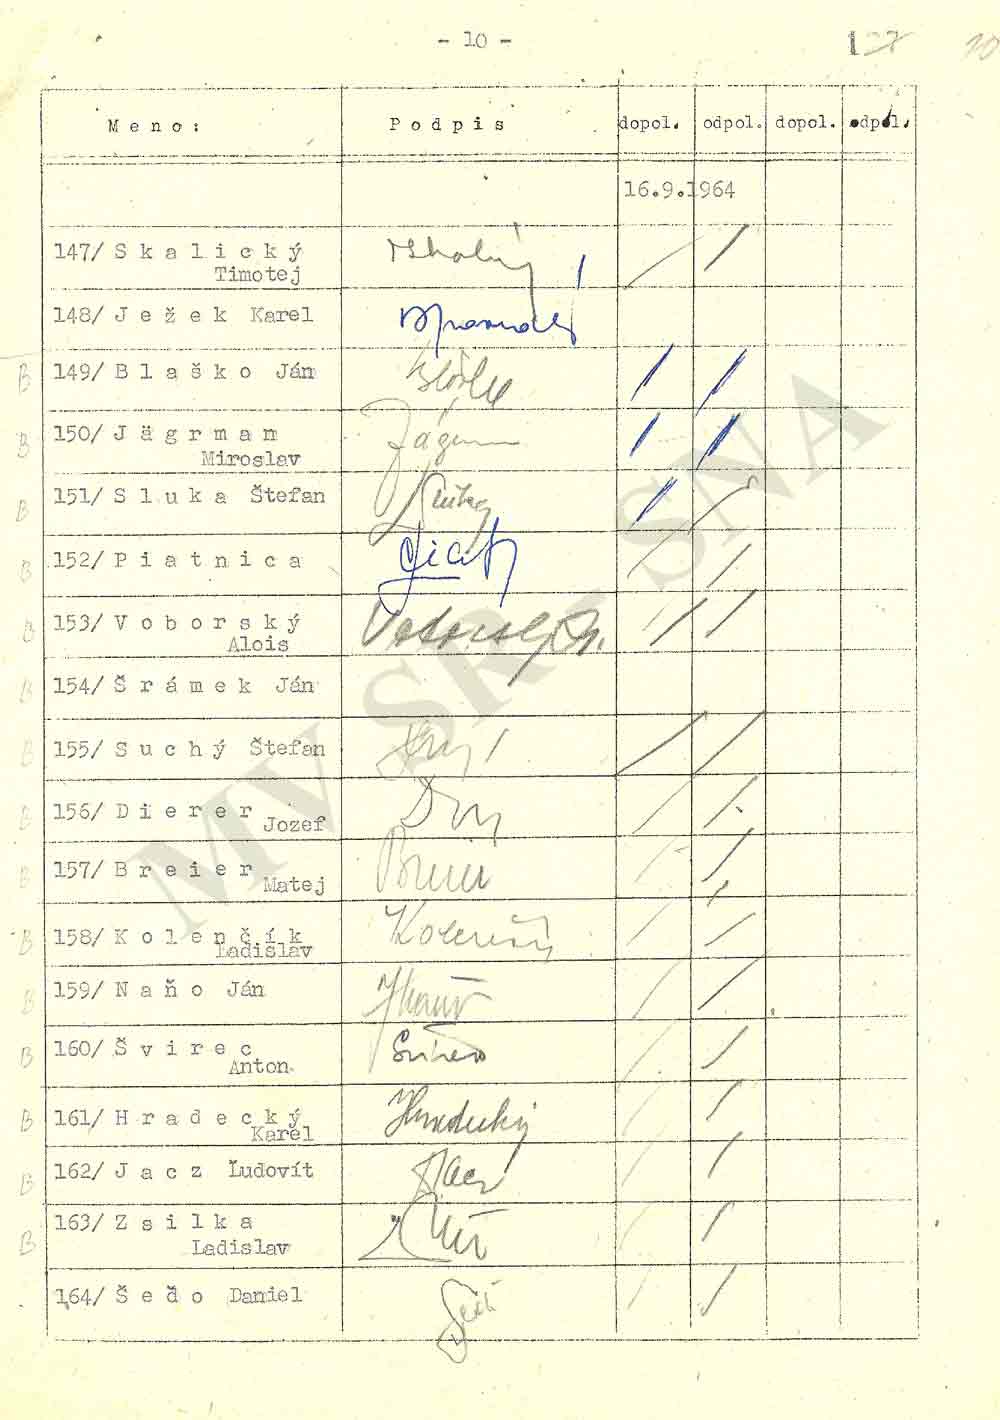 - 10 -
Meno: Podpis dopol. odpol. dopol. odpol.
16.9.1964
147/ Skalický
Timotej
148/ Ježek Karel
B 149/ Blaško Ján
B 150/ Jägrman Jágrman
Miroslav
B 151/ Sluka Štefan Sluka
B 152/ Piatnica
B 153/ Voborský Voborský
Alois
B 154/ Šrámek Ján
B 155/ Suchý Štefan
B 156/ Dierer
Jozef
B 157/ Breier Breier
Matej
B 158/ Kolenčík Kolenčík
Ladislav
B 159/ Naňo Ján
B 160/ Švirec Švirec
Anton
B 161/ Hradecký Hradecký
Karel
B 162/ Jacz Ľudovít
B 163/ Zsilka
Ladislav
164/ Šedo Daniel
MV SR - SNA